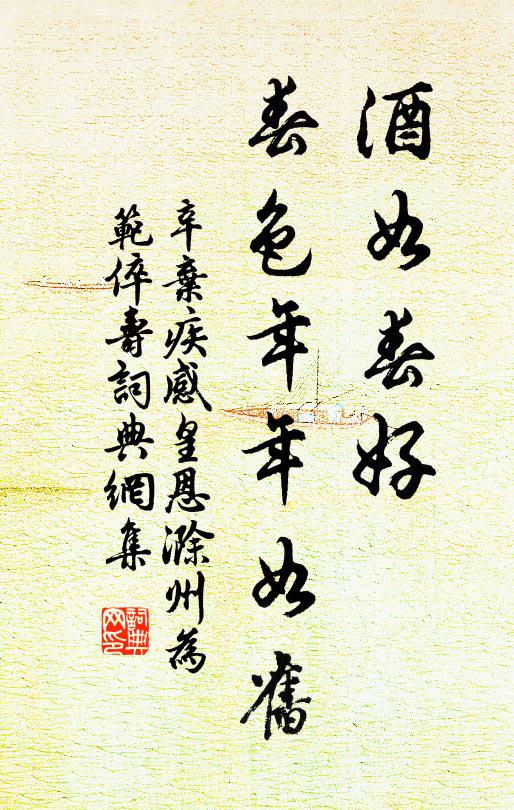 酒如春好
春色年年如舊
辛棄疾感皇恩滁州為
範倅壽詞典網集
詞典网印